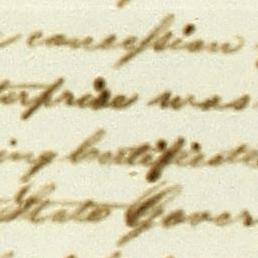 concession
terprise was
ing certificate
State Gover